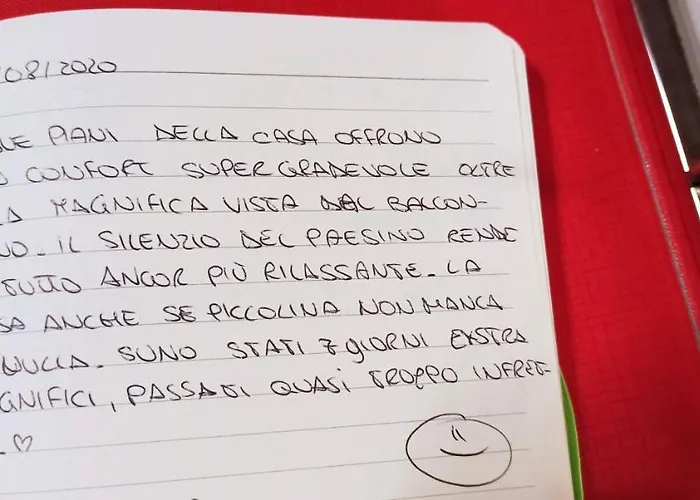 /08/2020
UE PIANI DELLA CASA OFFRONO
CONFORT SUPER GRADEVOLE OLTRE
LA MAGNIFICA VISTA DAL BALCON-
NO. IL SILENZIO DEL PAESINO RENDE
TUTTO ANCOR PIÙ RILASSANTE. LA
SA ANCHE SE PICCOLINA NON MANCA
NULLA. SUNO STATI 7 GIORNI EXSTRA
GNIFICI, PASSATI QUASI TROPPO INFRET-
. ♡